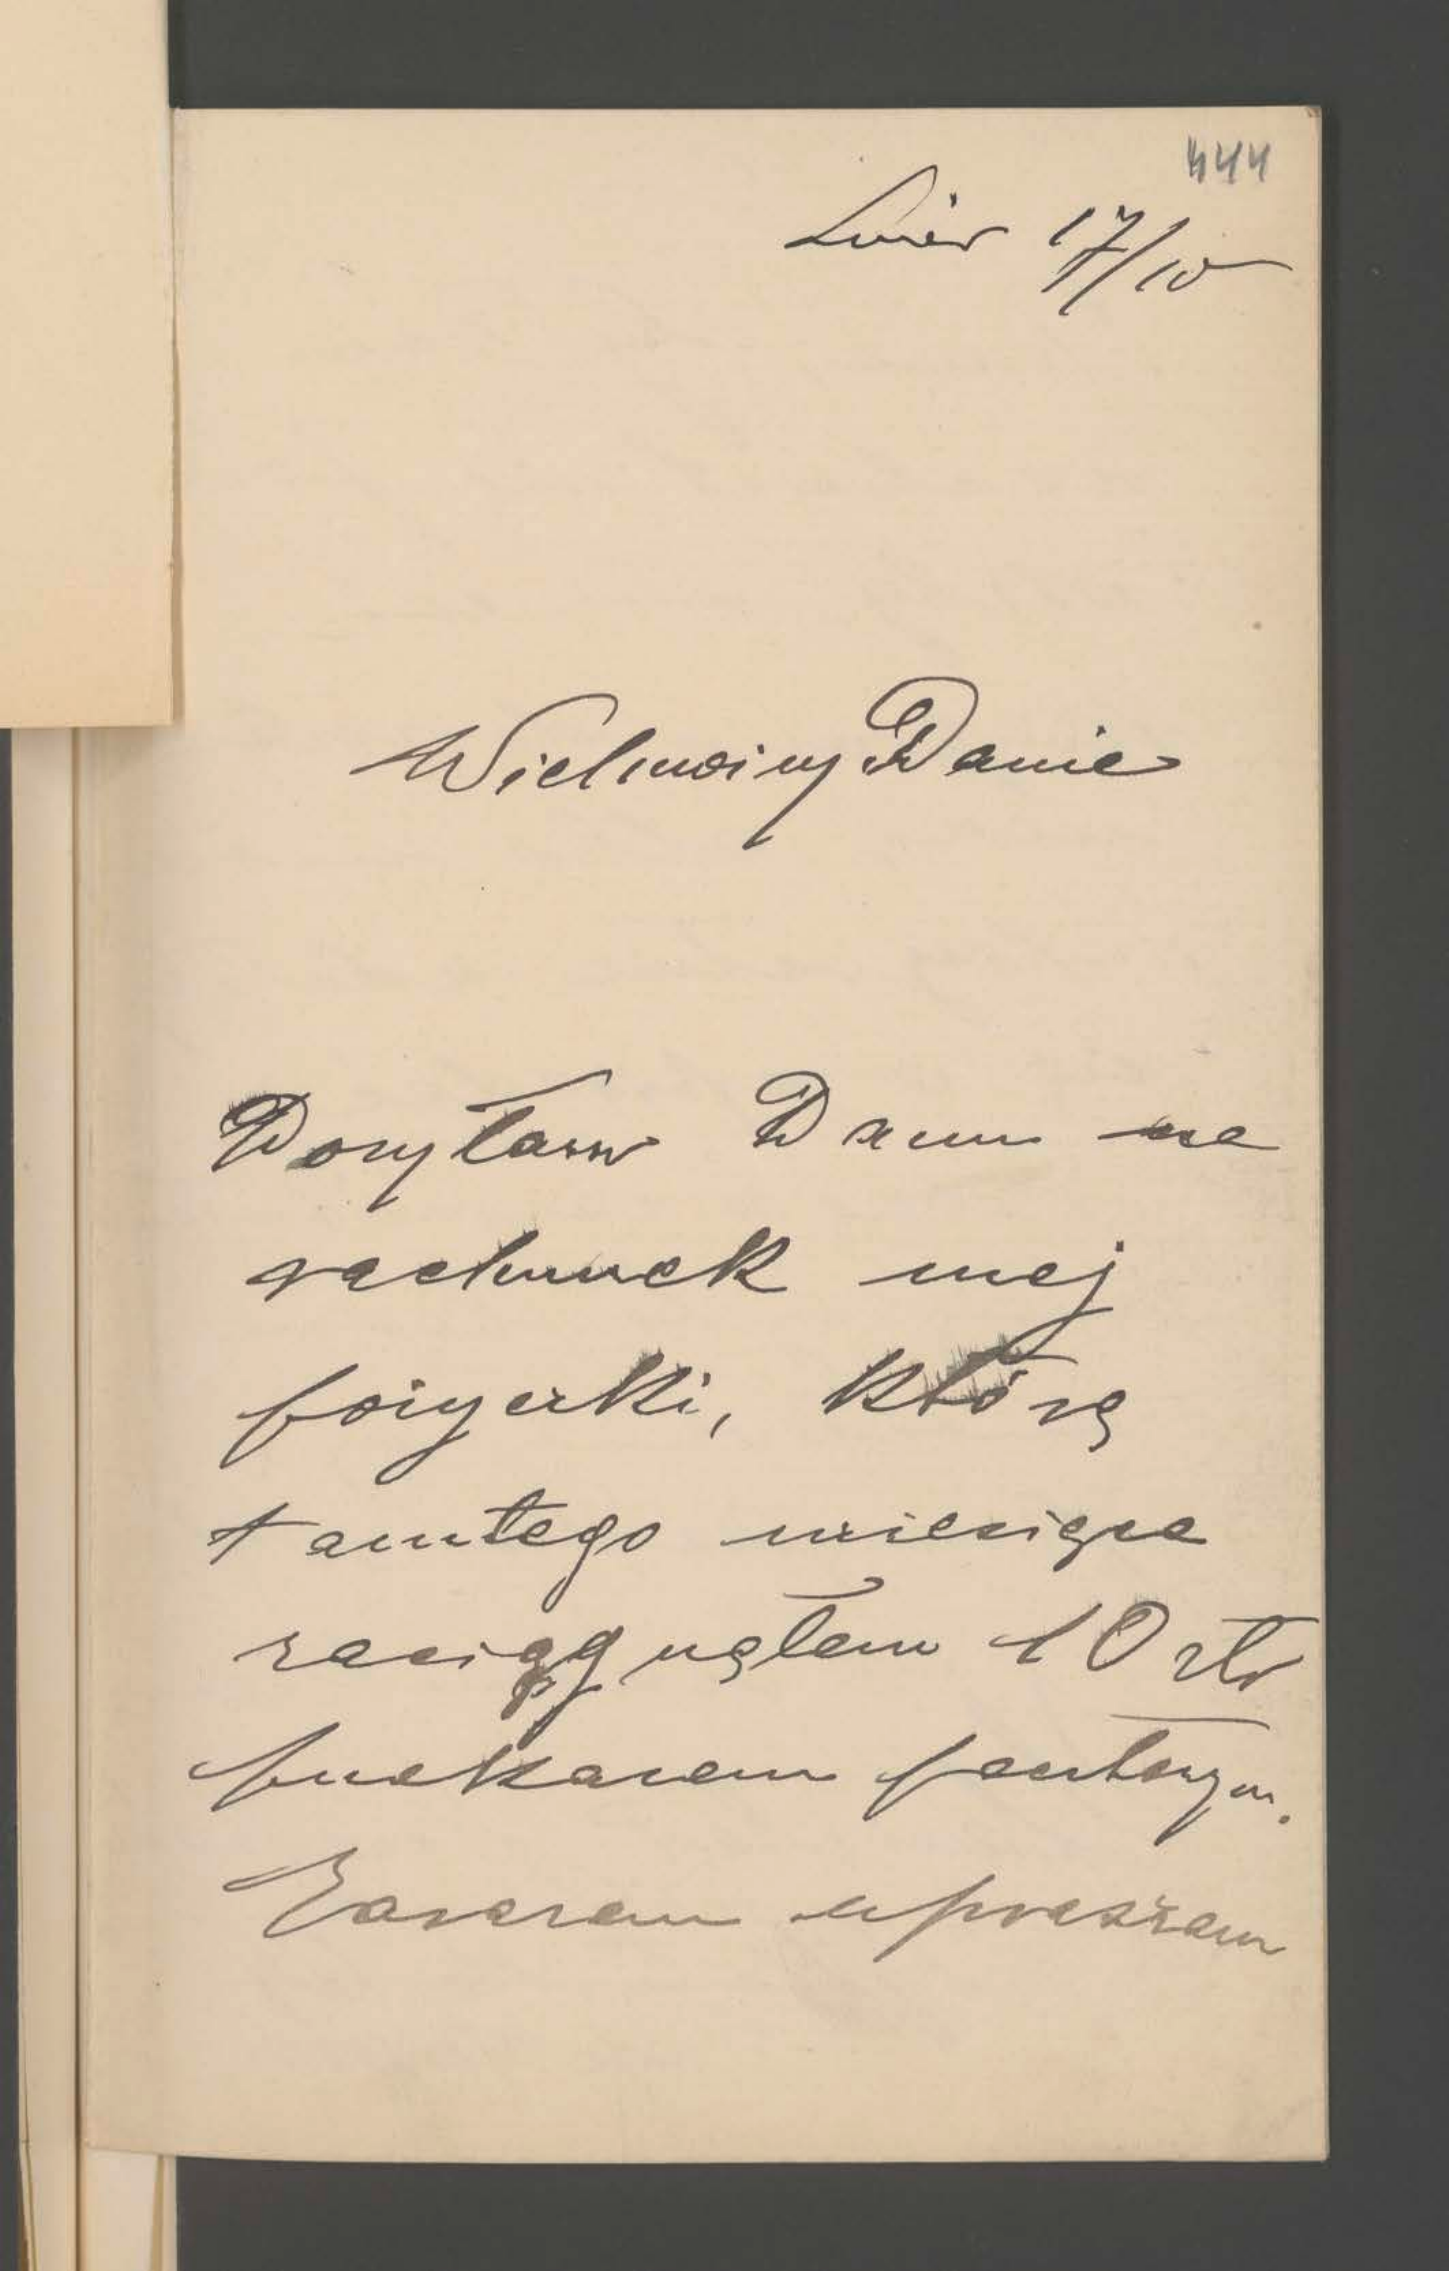 444
Lwów 17/10
Wielmożny Panie
Posyłam Panu na
rachunek mej
pożyczki, którą
tamtego miesiąca
zaciągnąłem 10 złr
przekazem pocztowym.
Zarazem upraszam